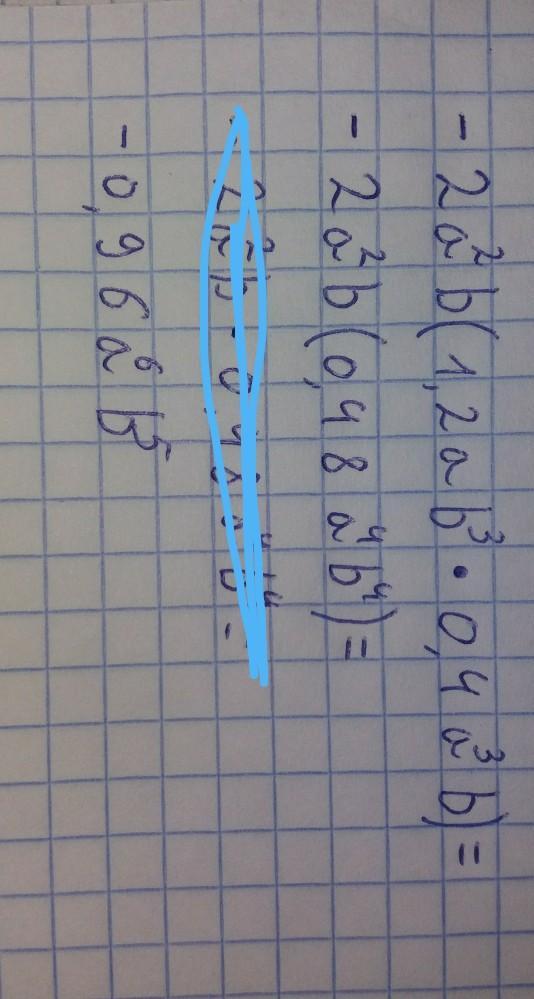 - 2a²b(1,2ab³ · 0,4a³b) =
- 2a²b(0,48a⁴b⁴) =
- 0,96a⁶b⁵